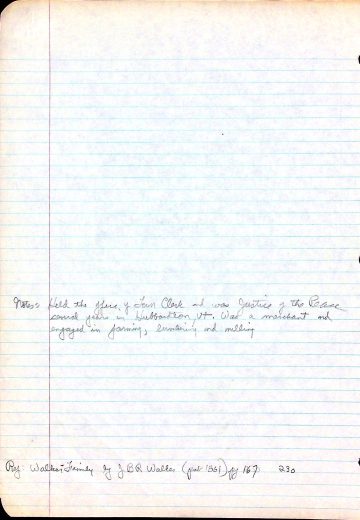 Notes: Held the office of Town Clerk and was Justice of the Peace
several years in Hubbardton, Vt. Was a merchant and
engaged in farming, lumbering and milling
Ref Walker Family by J B R Walker (pub 1861) pg 167 230